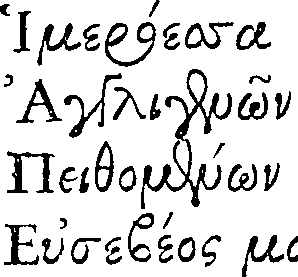 Ἱμερόεσσα
Ἀγγλιγενῶν
Πειθομένων
Εὐσεβέος